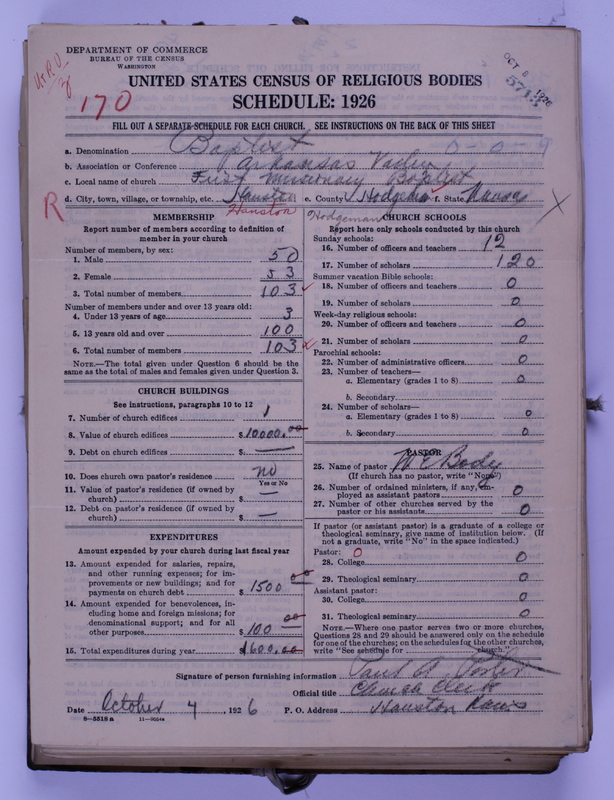 DEPARTMENT OF COMMERCE
BUREAU OF THE CENSUS
WASHINGTON
170
OCT 8 1926
UNITED STATES CENSUS OF RELIGIOUS BODIES
SCHEDULE: 1926
FILL OUT A SEPARATE SCHEDULE FOR EACH CHURCH. SEE INSTRUCTIONS ON THE BACK OF THIS SHEET
a. Denomination Baptist
b. Association or Conference Arkansas Valley
c. Local name of church First Missionary Baptist
R
d. City, town, village, or township, etc. Hanston e. County Hodgeman f. State Kansas
X
Hanston
Hodgeman
MEMBERSHIP
Report number of members according to definition of
member in your church
Number of members, by sex:
1. Male 50
2. Female 53
3. Total number of members 103
Number of members under and over 13 years old:
4. Under 13 years of age 3
5. 13 years old and over 100
6. Total number of members 103
NOTE.—The total given under Question 6 should be
same as the total of males and females given under Question 3.
CHURCH BUILDINGS
See instructions, paragraphs 10 to 12
7. Number of church edifices 1
8. Value of church edifices $10000.00
9. Debt on church edifices $ —
10. Does church own pastor's residence no
Yes or No
11. Value of pastor's residence (if owned by
church) $ —
12. Debt on pastor's residence (if owned by
church) $ —
EXPENDITURES
Amount expended by your church during last fiscal year
13. Amount expended for salaries, repairs,
and other running expenses; for im-
provements or new buildings; and for
payments on church debt $1500 00
14. Amount expended for benevolences, in-
cluding home and foreign missions; for
denominational support; and for all
other purposes $100 00
15. Total expenditures during year $1600.00
CHURCH SCHOOLS
Report here only schools conducted by this church
Sunday schools:
16. Number of officers and teachers 12
17. Number of scholars 120
Summer vacation Bible schools:
18. Number of officers and teachers 0
19. Number of scholars 0
Week-day religious schools:
20. Number of officers and teachers 0
21. Number of scholars 0
Parochial schools:
22. Number of administrative officers 0
23. Number of teachers—
a. Elementary (grades 1 to 8) 0
b. Secondary
24. Number of scholars—
a. Elementary (grades 1 to 8) 0
b. Secondary 0
PASTOR
25. Name of pastor W E Body
(If church has no pastor, write "None")
26. Number of ordained ministers, if any, em-
ployed as assistant pastors 0
27. Number of other churches served by the
pastor or his assistants 0
If pastor (or assistant pastor) is a graduate of a college or
theological seminary, give name of institution below. (If
not a graduate, write "No" in the space indicated.)
Pastor: 0
28. College 0
29. Theological seminary 0
Assistant pastor:
30. College 0
31. Theological seminary 0
NOTE.—Where one pastor serves two or more churches,
Questions 28 and 29 should be answered only on the schedule
for one of the churches; on the schedules for the other churches,
write "See schedule for church."
Signature of person furnishing information Paul A
Official title Church Clerk
Date October 4, 1926 P. O. Address Hanston Kans
8—5518 a 11—9024a